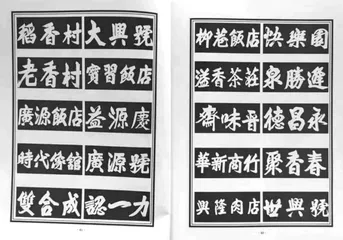 稻香村 大興號
老香村 賓習飯店
廣源飯店 益源慶
時代傢舘 廣源號
雙合成 認一力
柳巷飯店 快樂園
溢香茶莊 泉勝進
齋味晋 德昌永
華新商行 聚香春
興隆肉店 世興號